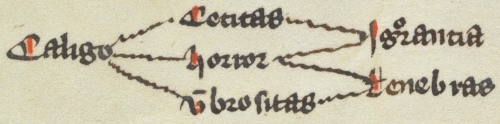 Caligo
Cecitas
horror
v̄brositas
Igͦrantia
tenebras